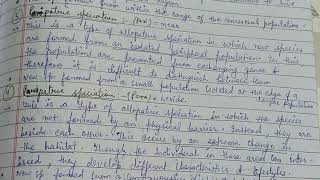 formed from within the range of the ancestral population.
③ Peripatric speciation: (Peri) = near
→ This is a type of allopatric speciation in which new species
are formed from an isolated peripheral population. In this
the populations are prevented from exchanging genes &
therefore it is difficult to distinguish between them.
→ New sp. formed from a small population isolated at the edge of a
large population
④ Parapatric speciation: (Para) = beside
→ This is a type of allopatric speciation in which the species
are not formed by any physical barrier. Instead, they are
beside each other. This occurs by an extreme change in
the habitat. Though the individual in these areas can inter-
breed, they develop different characteristics & lifestyles.
→ New sp. formed from a continuously